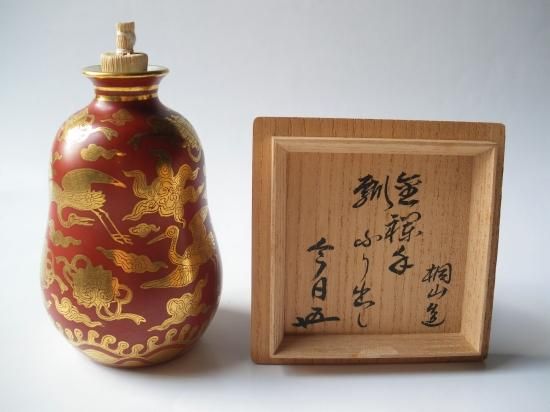 桐山造
金襴手
瓢ふり出し
今日庵